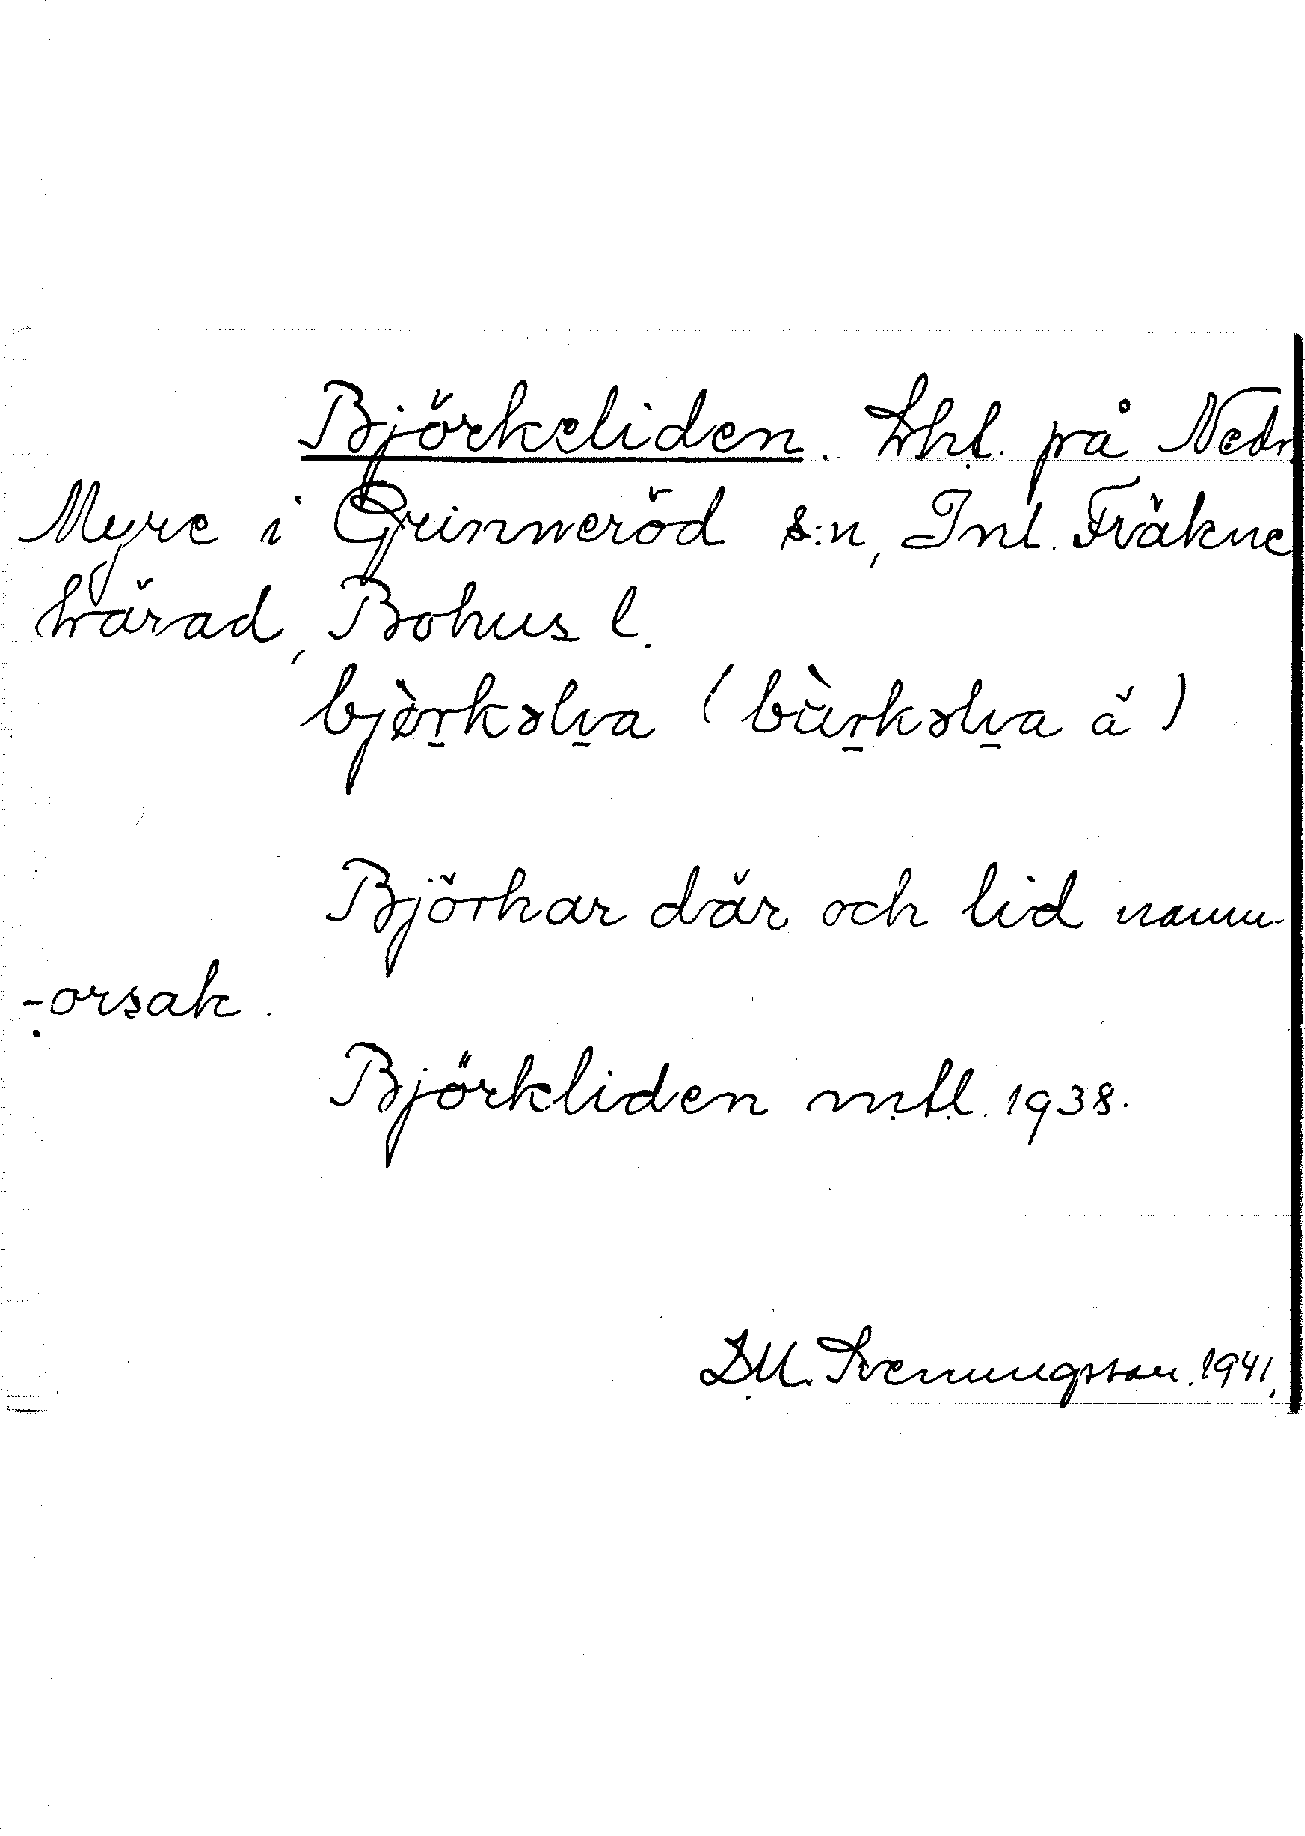 Björkeliden. Lht. på Nedr.
Myre i Grinneröd s:n, Inl. Fräkne
härad, Bohus l.
bjèrkəlia (bùrkəlia ä)
Björkar där och lid namn-
-orsak.
Björkliden mtl. 1938.
D.M. Svenningsson. 1941.